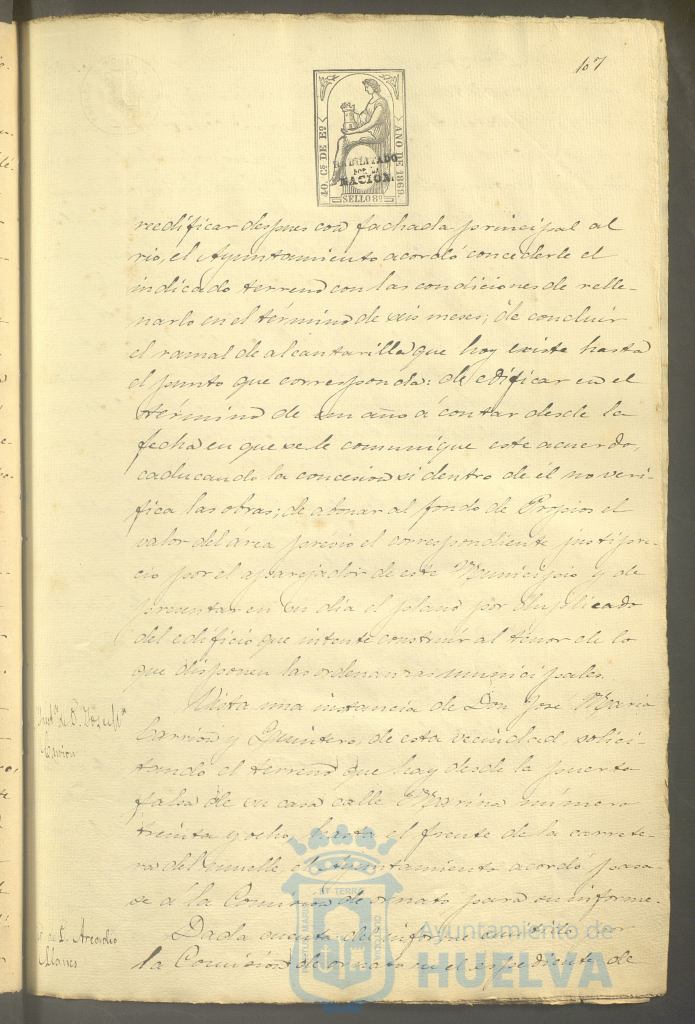 107
10 Cs DE Eº
AÑO DE 1869.
HABILITADO
POR LA
NACION.
SELLO 8º
reedificar despues con fachada principal al
rio, el Ayuntamiento acordó concederle el
indicado terreno con las condiciones de relle-
narlo en el término de seis meses; de concluir
el ramal de alcantarilla que hoy existe hasta
el punto que corresponda: de edificar en el
término de un año á contar desde la
fecha en que se le comunique este acuerdo,
caducando la concesion si dentro de él no veri-
fica las obras; de abonar al fondo de Propios el
valor del área previo el correspondiente justipre-
cio por el aparejador de este Municipio y de
presentar en su dia el plano por duplicado
del edificio que intente construir al tenor de lo
que disponen las ordenanzas municipales.
Carrion
Vista una instancia de Don José Maria
Carrion y Quintero, de esta vecindad solici-
tando el terreno que hay desde la puerta
falsa de su casa calle Marina número
treinta y ocho, hasta el frente de la carrete-
ra del muelle, el Ayuntamiento acordó pasa-
se á la Comision de ornato para su informe.
de D. Arcadio
Alanes
Dada cuenta del informe emitido por
la Comision de ornato en el espediente de
Ayuntamiento de
HUELVA